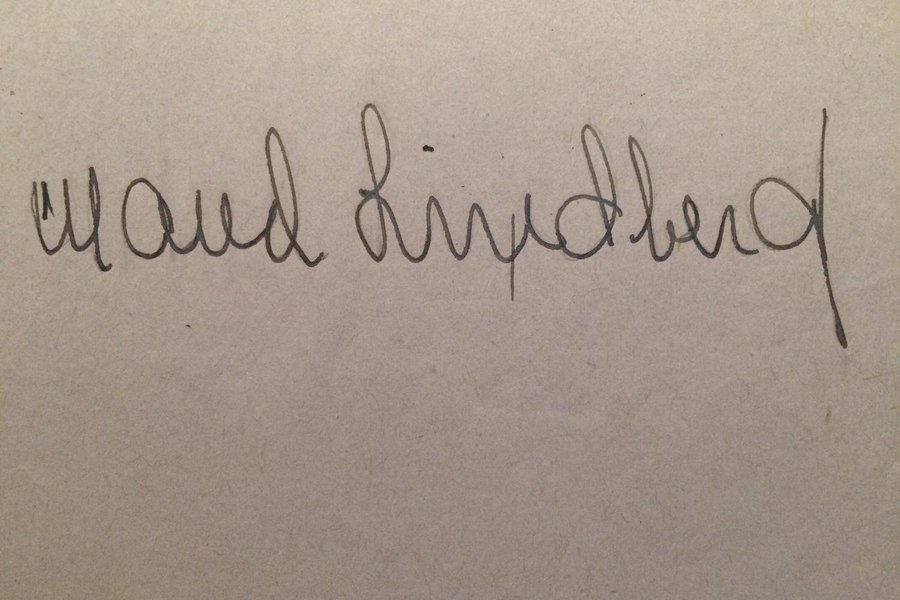 Maud Lindberg